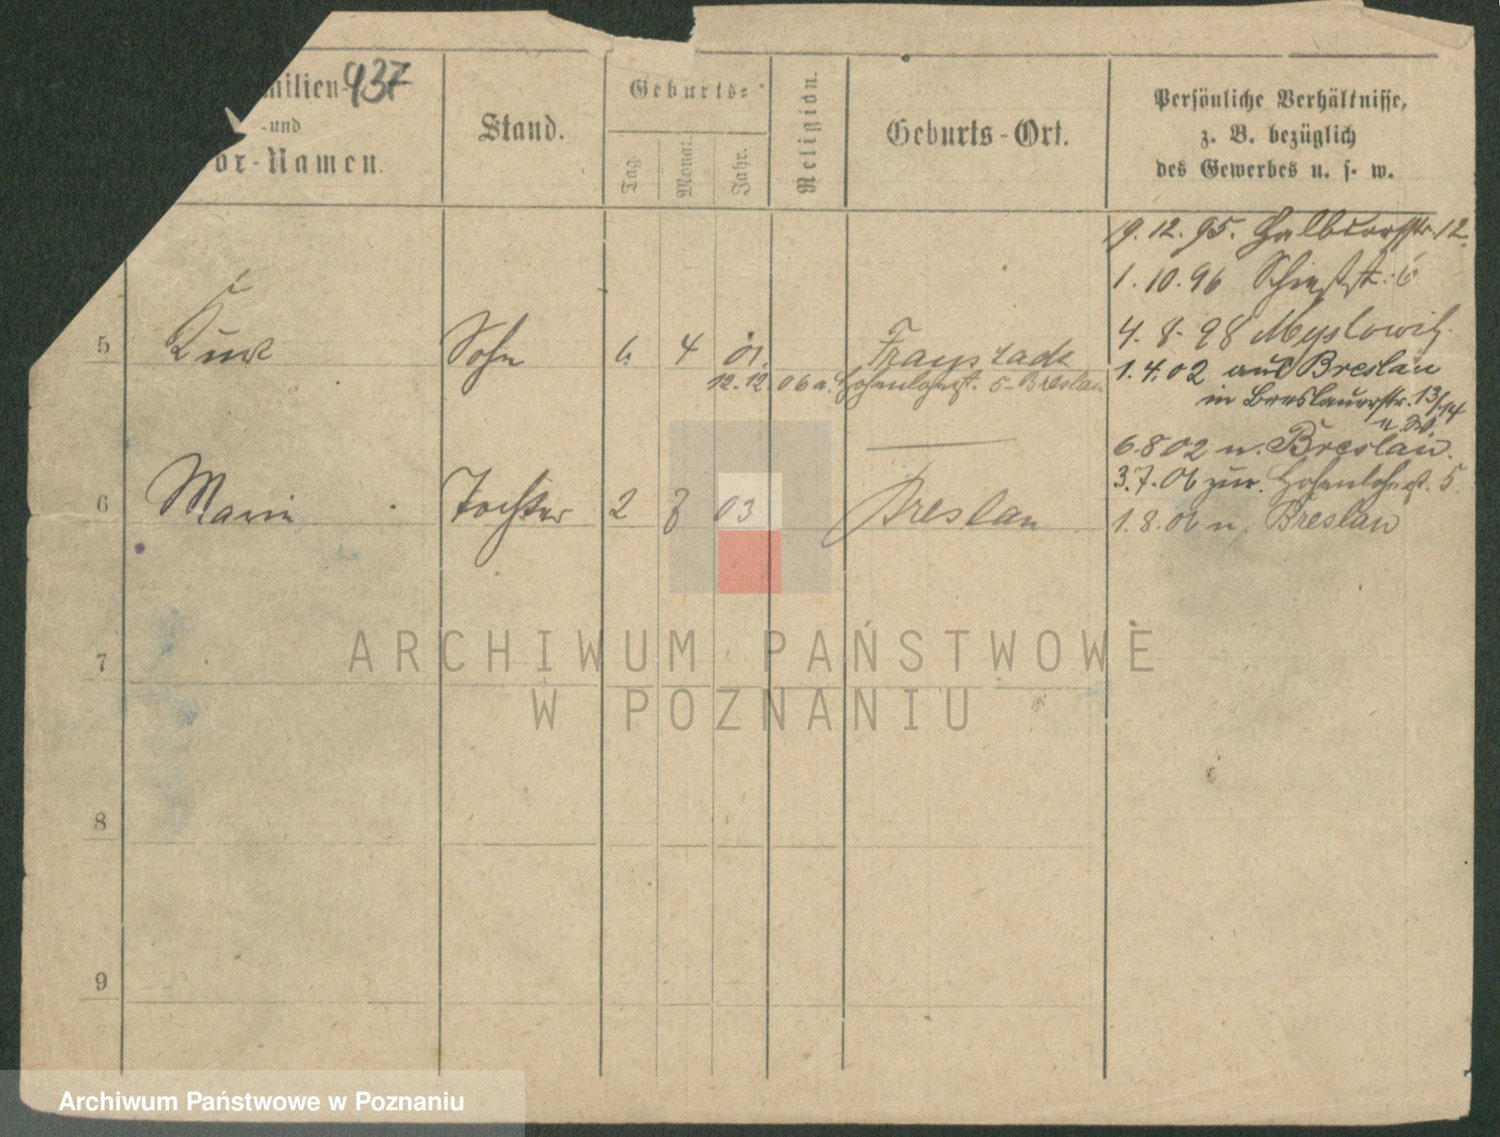 937
milien-
-und
or-Namen.
Stand.
Geburts-
Tag.
Monat.
Jahr.
Religion.
Geburts-Ort.
Persönliche Verhältnisse,
z. B. bezüglich
des Gewerbes u. s. w.
9. 12. 95. Halbdorfstr. 12.
1. 10. 96 Schießstr. 6
4. 8. 98 Myslowitz.
5 Kurt Sohn 6. 4 01. Fraustadt
1. 4. 02 aus Breslau
12. 12. 06 a. Hohenlohestr. 5 - Breslau
in Breslauerstr. 13/14
6 8 02 n. Breslau.
3. 7. 06 zur. Hohenlohestr. 5
6 Marie Tochter 2 7 03 Breslau
1. 8. 06 n. Breslau
7
8
9
ARCHIWUM PAŃSTWOWE
W POZNANIU
Archiwum Państwowe w Poznaniu